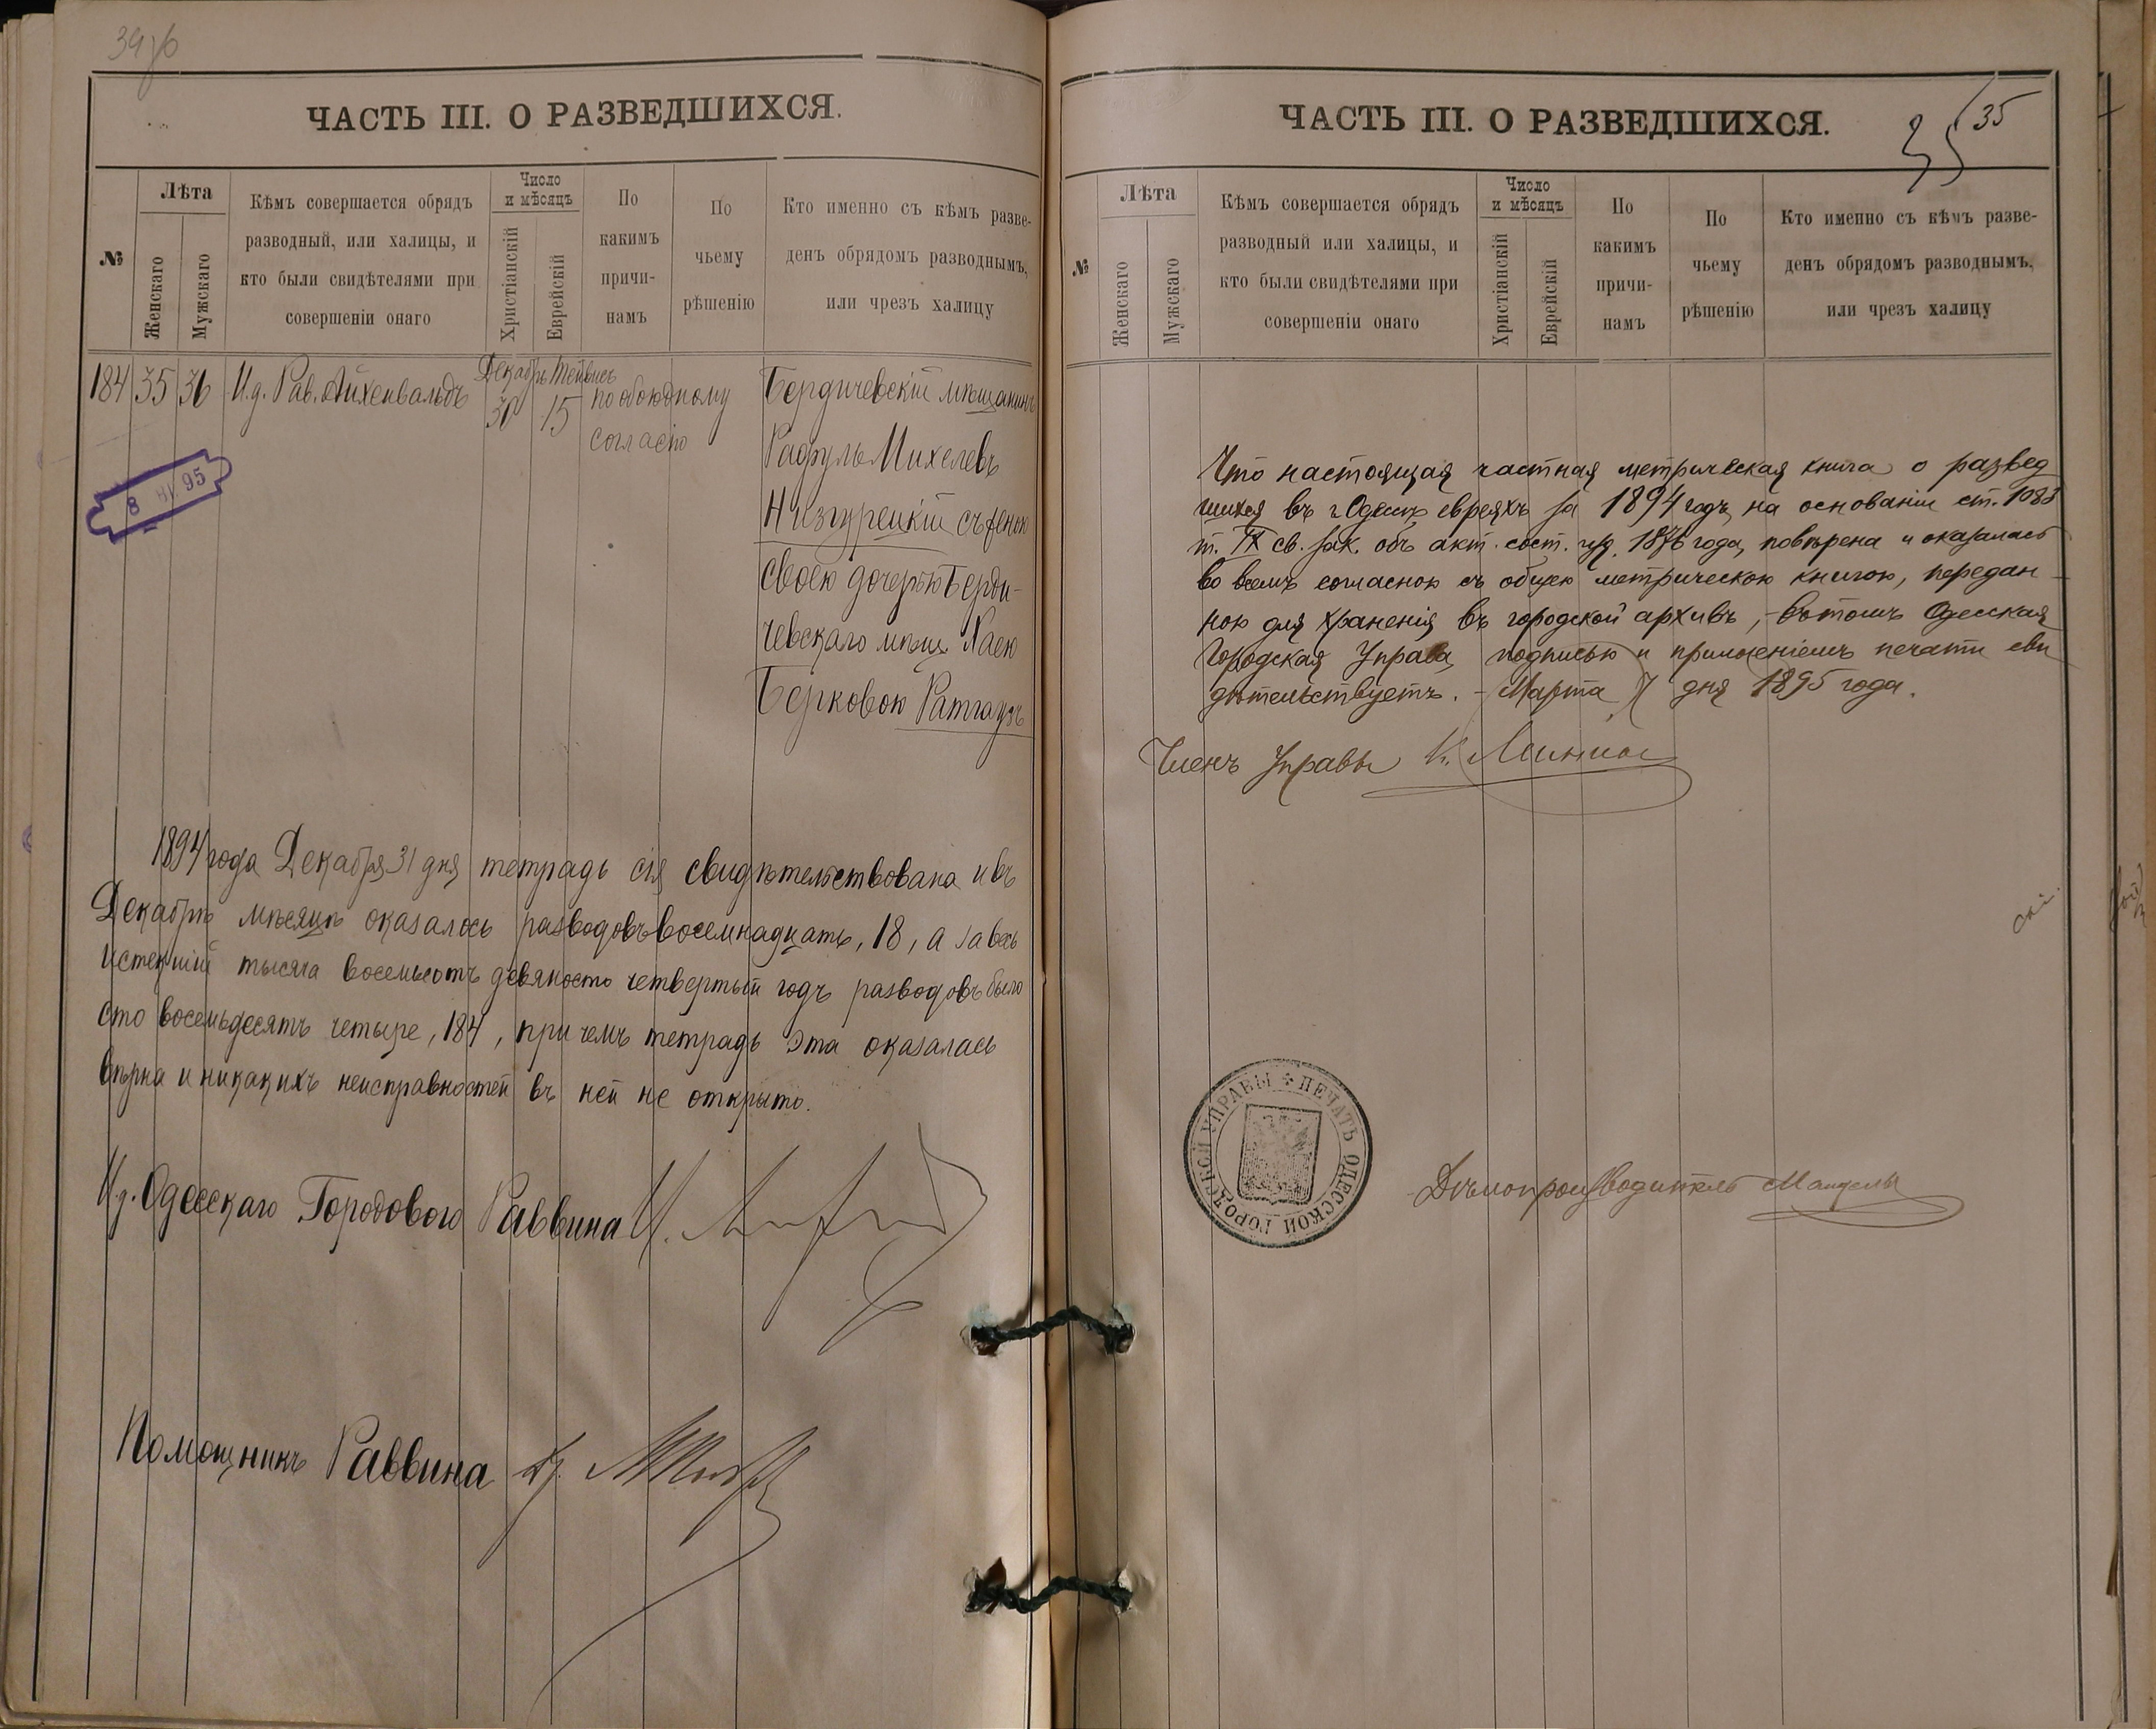 ЧАСТЬ III. О РАЗВЕДШИХСЯ.
№
Лѣта
Женскаго
Мужскаго
Кѣмъ совершается обрядъ
разводный, или халицы, и
кто были свидѣтелями при
совершеніи онаго
Число
и мѣсяцъ
Христіанскій
Еврейскій
По
какимъ
причи-
намъ
По
чьему
рѣшенію
Кто именно съ кѣмъ разве-
денъ обрядомъ разводнымъ,
или чрезъ халицу
184
35
36
И.д. Рав. Айхенвальдъ
Декабрь
30
Тейвисъ
15
по обоюдному
согласію
Бердичевскій мѣщанинъ
Рафуль Михелевъ
Низгурецкій съ женою
своею дочерью Берди-
чевскаго мѣщ. Хаею
Берковою Ратгаузъ
8 95
1894 года Декабря 31 дня тетрадь сія свидѣтельствована и въ
Декабрѣ мѣсяцѣ оказалось разводовъ восемнадцать, 18, а за весь
истекшій тысяча восемьсотъ девяносто четвертый годъ разводовъ было
сто восемьдесятъ четыре, 184, при чемъ тетрадь эта оказалась
вѣрна и никакихъ неисправностей въ ней не открыто.
И.д. Одесскаго Городового Раввина
Помощникъ Раввина
ЧАСТЬ III. О РАЗВЕДШИХСЯ.
35
35
№
Лѣта
Женскаго
Мужскаго
Кѣмъ совершается обрядъ
разводный или халицы, и
кто были свидѣтелями при
совершеніи онаго
Число
и мѣсяцъ
Христіанскій
Еврейскій
По
какимъ
причи-
намъ
По
чьему
рѣшенію
Кто именно съ кѣмъ разве-
денъ обрядомъ разводнымъ,
или чрезъ халицу
Что настоящая частная метрическая книга о развед
шихся въ г. Одессѣ евреяхъ за 1894 годъ, на основаніи ст. 1083
т. IX св. зак. объ акт. сост. изд. 1876 года, повѣрена и оказалась
во всемъ согласною съ общею метрическою книгою, передан-
ною для храненія въ городской архивъ, - въ томъ Одесская
Городская Управа, подписью и приложеніемъ печати сви
дѣтельствуетъ. - Марта 7 дня 1895 года.
Членъ Управы
ПЕЧАТЬ ОДЕССКОЙ ГОРОДСКОЙ УПРАВЫ
Дѣлопроизводитель